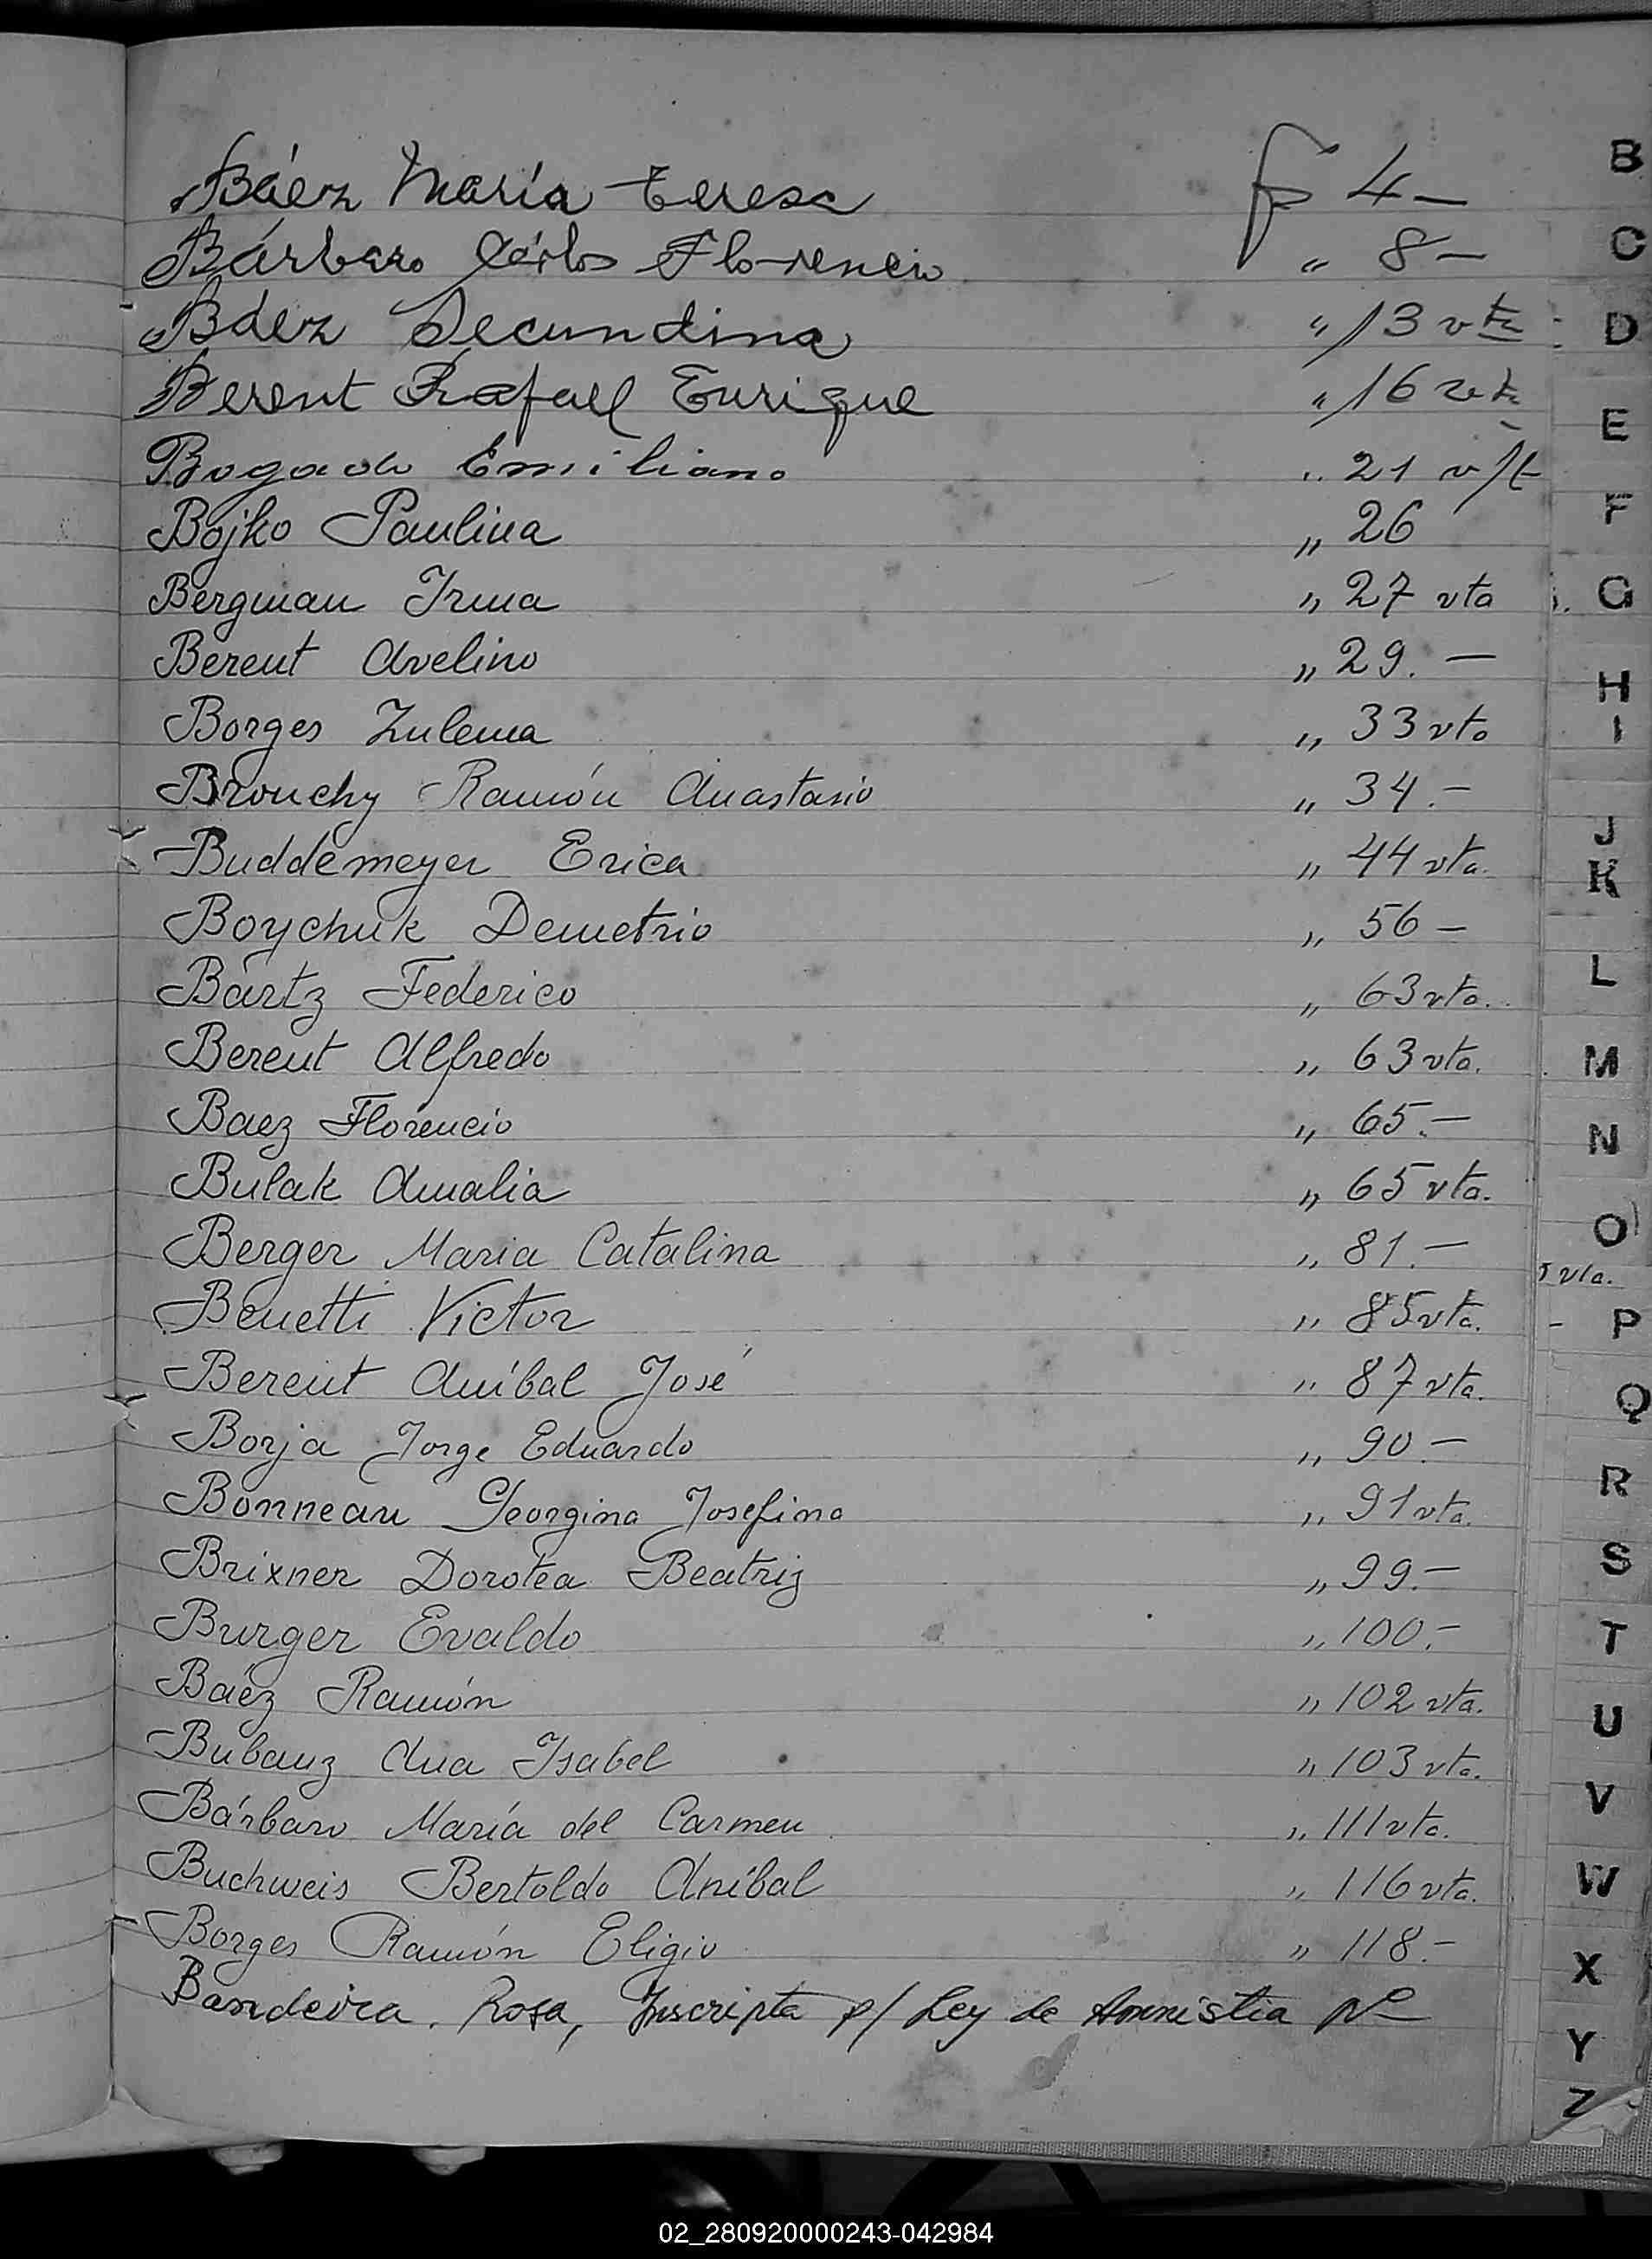 Báez María Teresa fs 4 —
Bárbaro Cárlos Florencio " 8 —
Báez Secundina " 13 vta
Berent Rafael Enrique " 16 vta
Bogado Emiliano " 21 v/t
Bojko Paulina " 26
Bergman Irma " 27 vta
Berent Avelino " 29. —
Borges Zulema " 33 vto
Brouchy Ramón Anastasio " 34. —
Buddemeyer Erica " 44 vta.
Boychuk Demetrio " 56 —
Bartz Federico " 63 vta.
Berent Alfredo " 63 vta.
Baez Florencio " 65. —
Bulak Amalia " 65 vta.
Berger Maria Catalina " 81. —
Benetti Victor " 85 vta.
Berent Aníbal José " 87 vta.
Borja Jorge Eduardo " 90 —
Bonneau Georgina Josefina " 91 vta.
Brixner Dorotea Beatriz " 99. —
Burger Evaldo " 100. —
Báez Ramón " 102 vta.
Bubanz Ana Isabel " 103 vta.
Bárbaro María del Carmen " 111 vta.
Buchweis Bertoldo Aníbal " 116 vta.
Borges Ramón Eligio " 118. —
Bandeira. Rosa, Inscripta p/ Ley de Amnistia Nº
B
C
D
E
F
G
H
I
J
K
L
M
N
O
vta.
P
Q
R
S
T
U
V
W
X
Y
Z
02_280920000243-042984